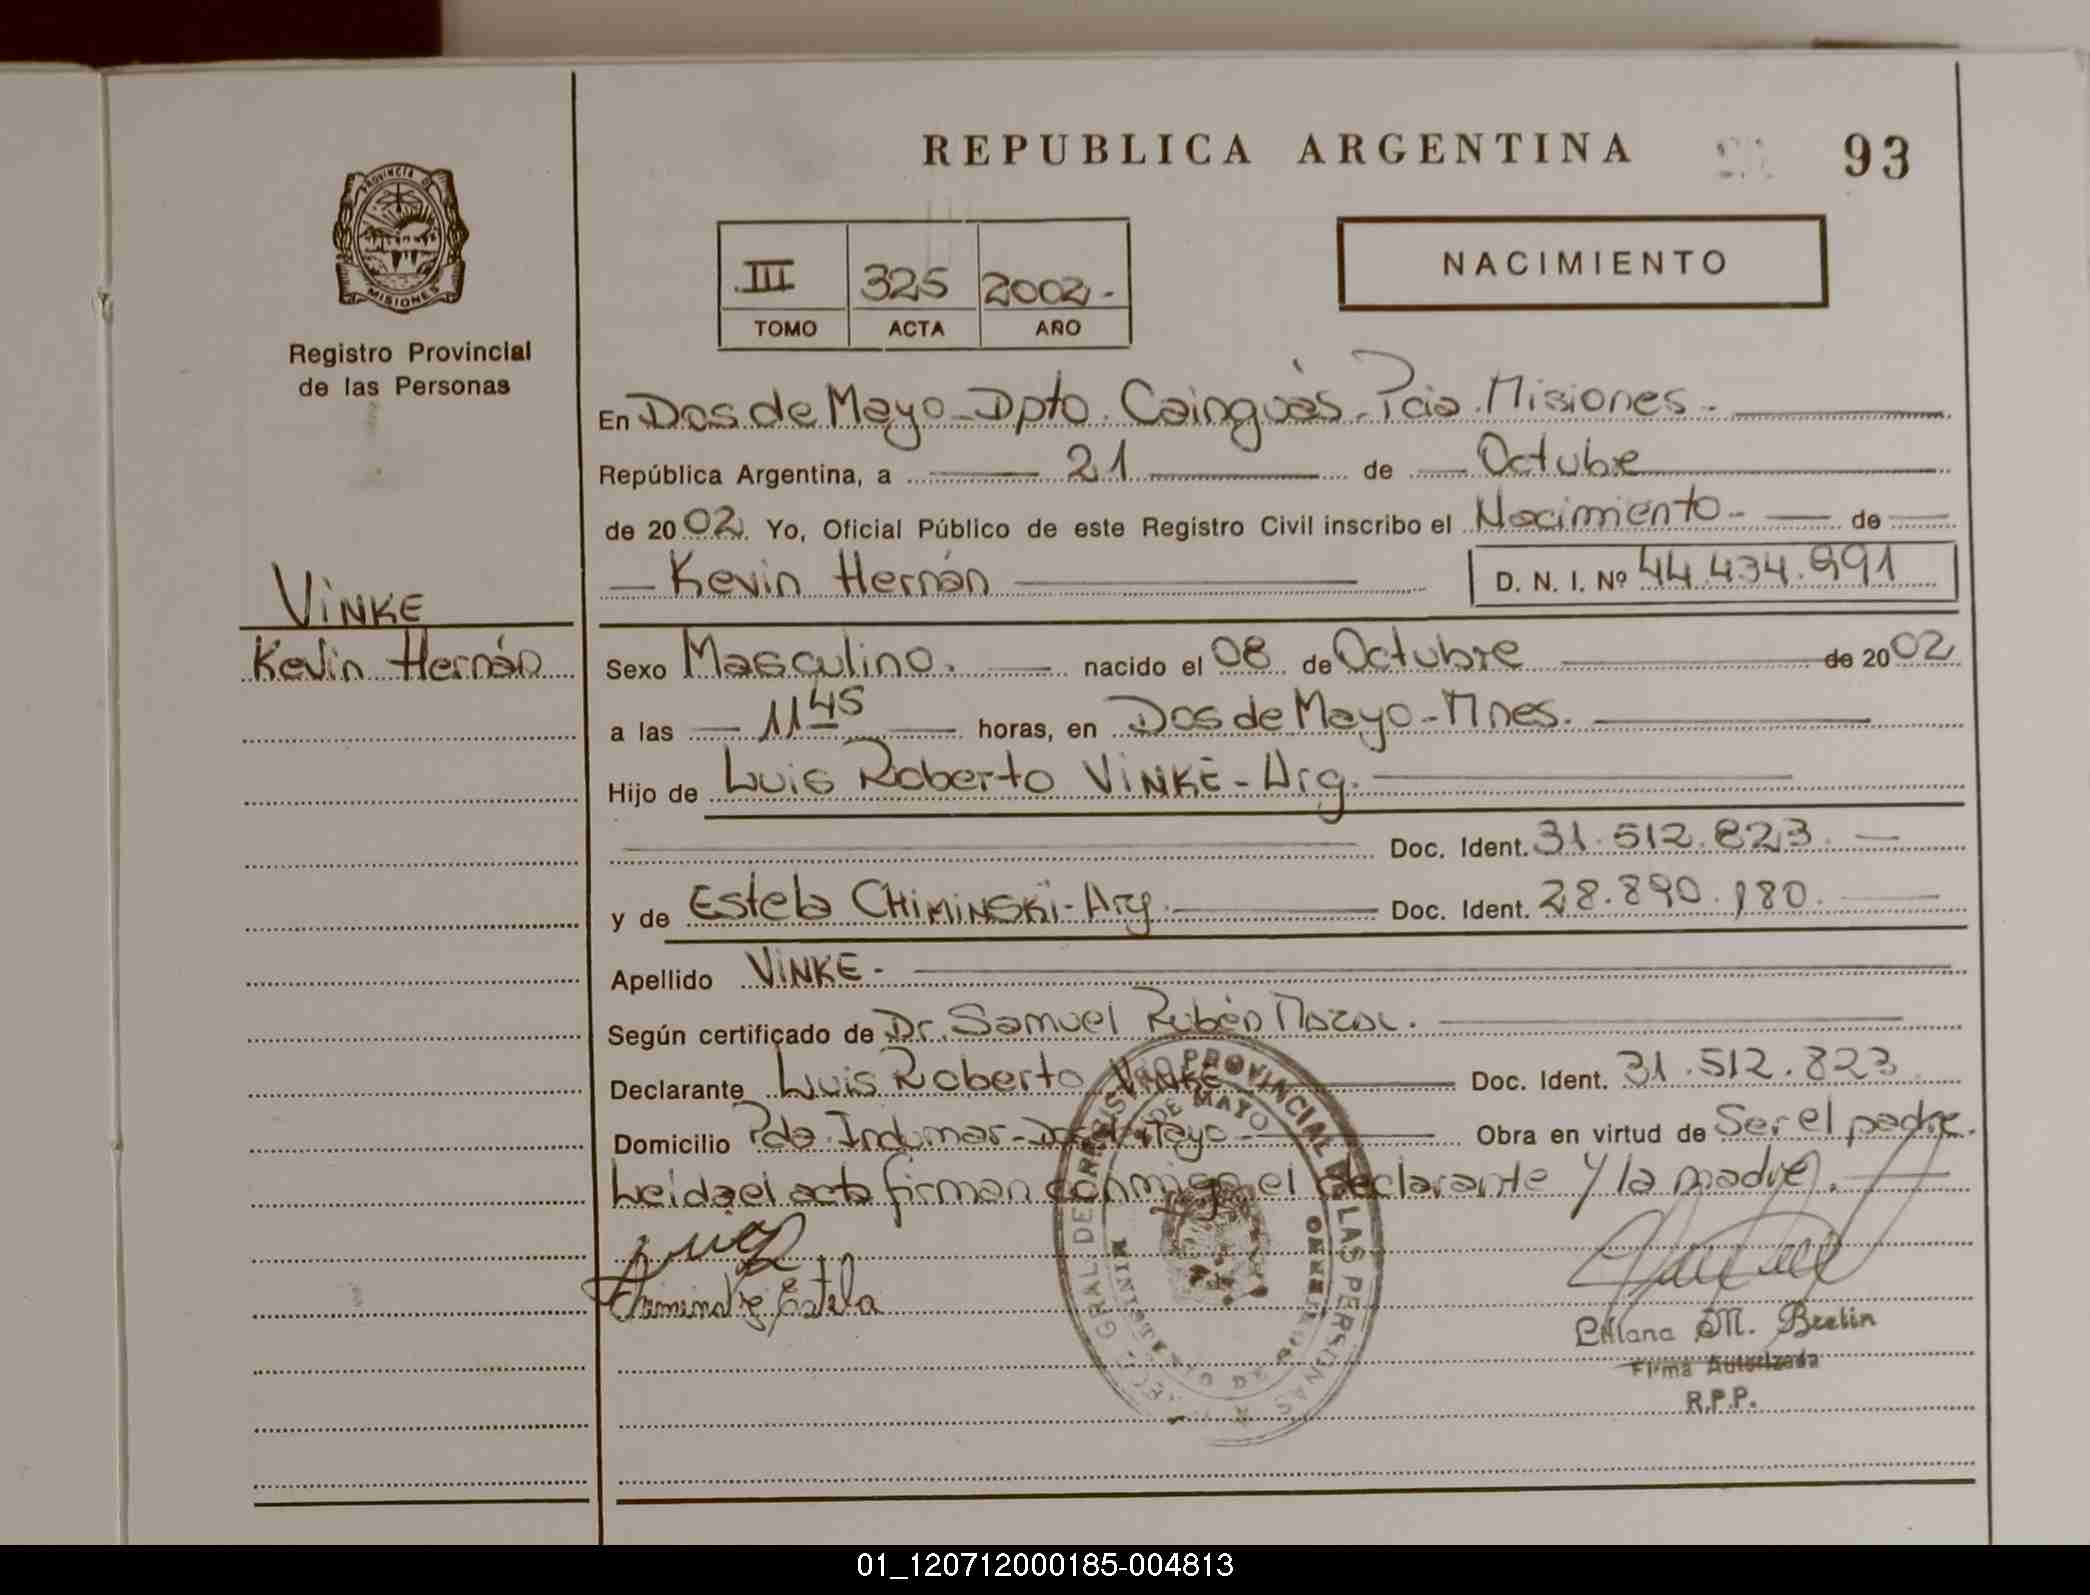 REPUBLICA ARGENTINA 93
PROVINCIA DE
MISIONES
Registro Provincial
de las Personas
III 325 2002.-
TOMO ACTA AÑO
NACIMIENTO
En Dos de Mayo - Dpto. Cainguás - Pcia. Misiones.-
República Argentina, a 21 de Octubre
de 20 02. Yo, Oficial Público de este Registro Civil inscribo el Nacimiento.- de
Kevin Hernán D. N. I. Nº 44.434.991
VINKE
Kevin Hernán
Sexo Masculino. nacido el 08 de Octubre de 20 02
a las 11 45 horas, en Dos de Mayo - Mnes.
Hijo de Luis Roberto VINKE - Arg.
Doc. Ident. 31.512.823.
y de Estela CHIMINSKI - Arg. Doc. Ident. 28.890.180.
Apellido VINKE.-
Según certificado de Dr. Samuel Rubén
Declarante Luis Roberto VINKE Doc. Ident. 31.512.823
Domicilio Pda. Indumar - Dos de Mayo.- Obra en virtud de Ser el padre.
Leida el acta firman conmigo el declarante y la madre.
Estela
PROVINCIAL DE LAS PERSONAS
DE MAYO
M. Brelin
Firma Autorizada
R.P.P.
01_120712000185-004813